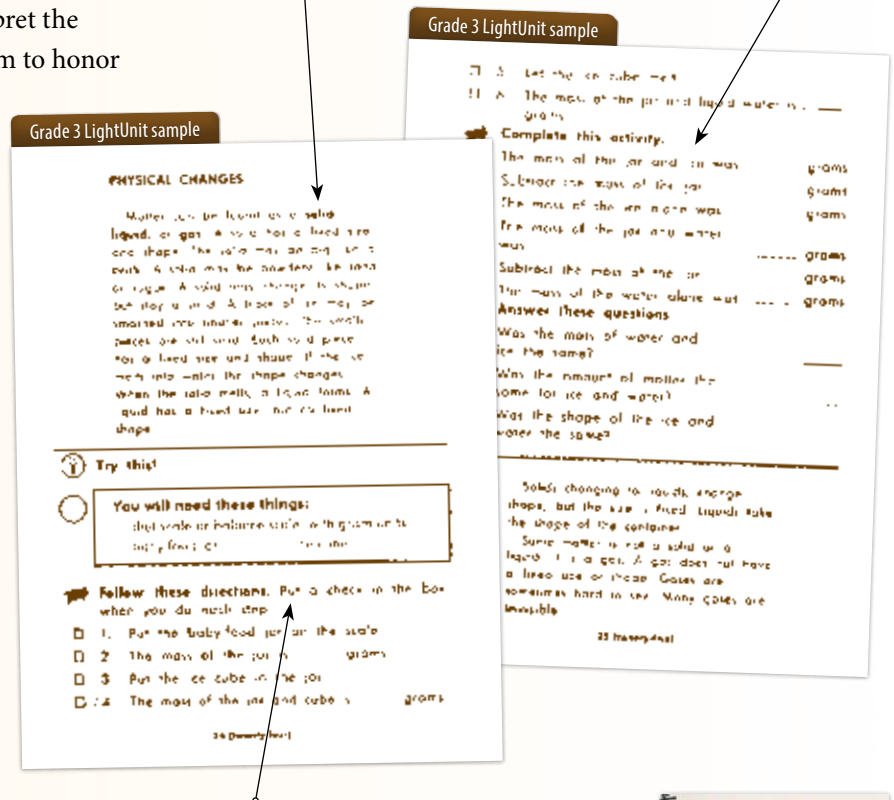 pret the
m to honor
Grade 3 LightUnit sample
PHYSICAL CHANGES
Matter can be found as a solid
liquid, or gas. A solid has a fixed size
and shape. The solid may be big
A solid may be powdery like
A solid may change its shape
but stay a solid. A block of ice may be
smashed into smaller pieces. The small
pieces are still solid. Each solid piece
has a fixed size and shape. If the ice
melts into water the shape changes
When the solid melts, a liquid forms. A
liquid has a fixed size but no fixed
shape
Try this!
You will need these things:
dial scale or balance scale with gram units
baby food jar
Follow these directions. Put a check in the box
when you do each step
1. Put the baby food jar on the scale
2 The mass of the jar is grams
3 Put the ice cube in the jar
4 The mass of the jar and cube is grams
24 (twenty-four)
Grade 3 LightUnit sample
5 Let the ice cube melt
6 The mass of the jar and liquid water is
grams
Complete this activity.
The mass of the jar and ice was grams
Subtract the mass of the jar grams
The mass of the ice alone was grams
The mass of the jar and water
was grams
Subtract the mass of the jar grams
The mass of the water alone was grams
Answer these questions
Was the mass of water and
ice the same?
Was the amount of matter the
same for ice and water?
Was the shape of the ice and
water the same?
Solids changing to liquids change
shape, but the size is fixed. Liquids take
the shape of the container
Some matter is not a solid or a
liquid. It is a gas. A gas does not have
a fixed size or shape. Gases are
sometimes hard to see. Many gases are
invisible
25 (twenty-five)